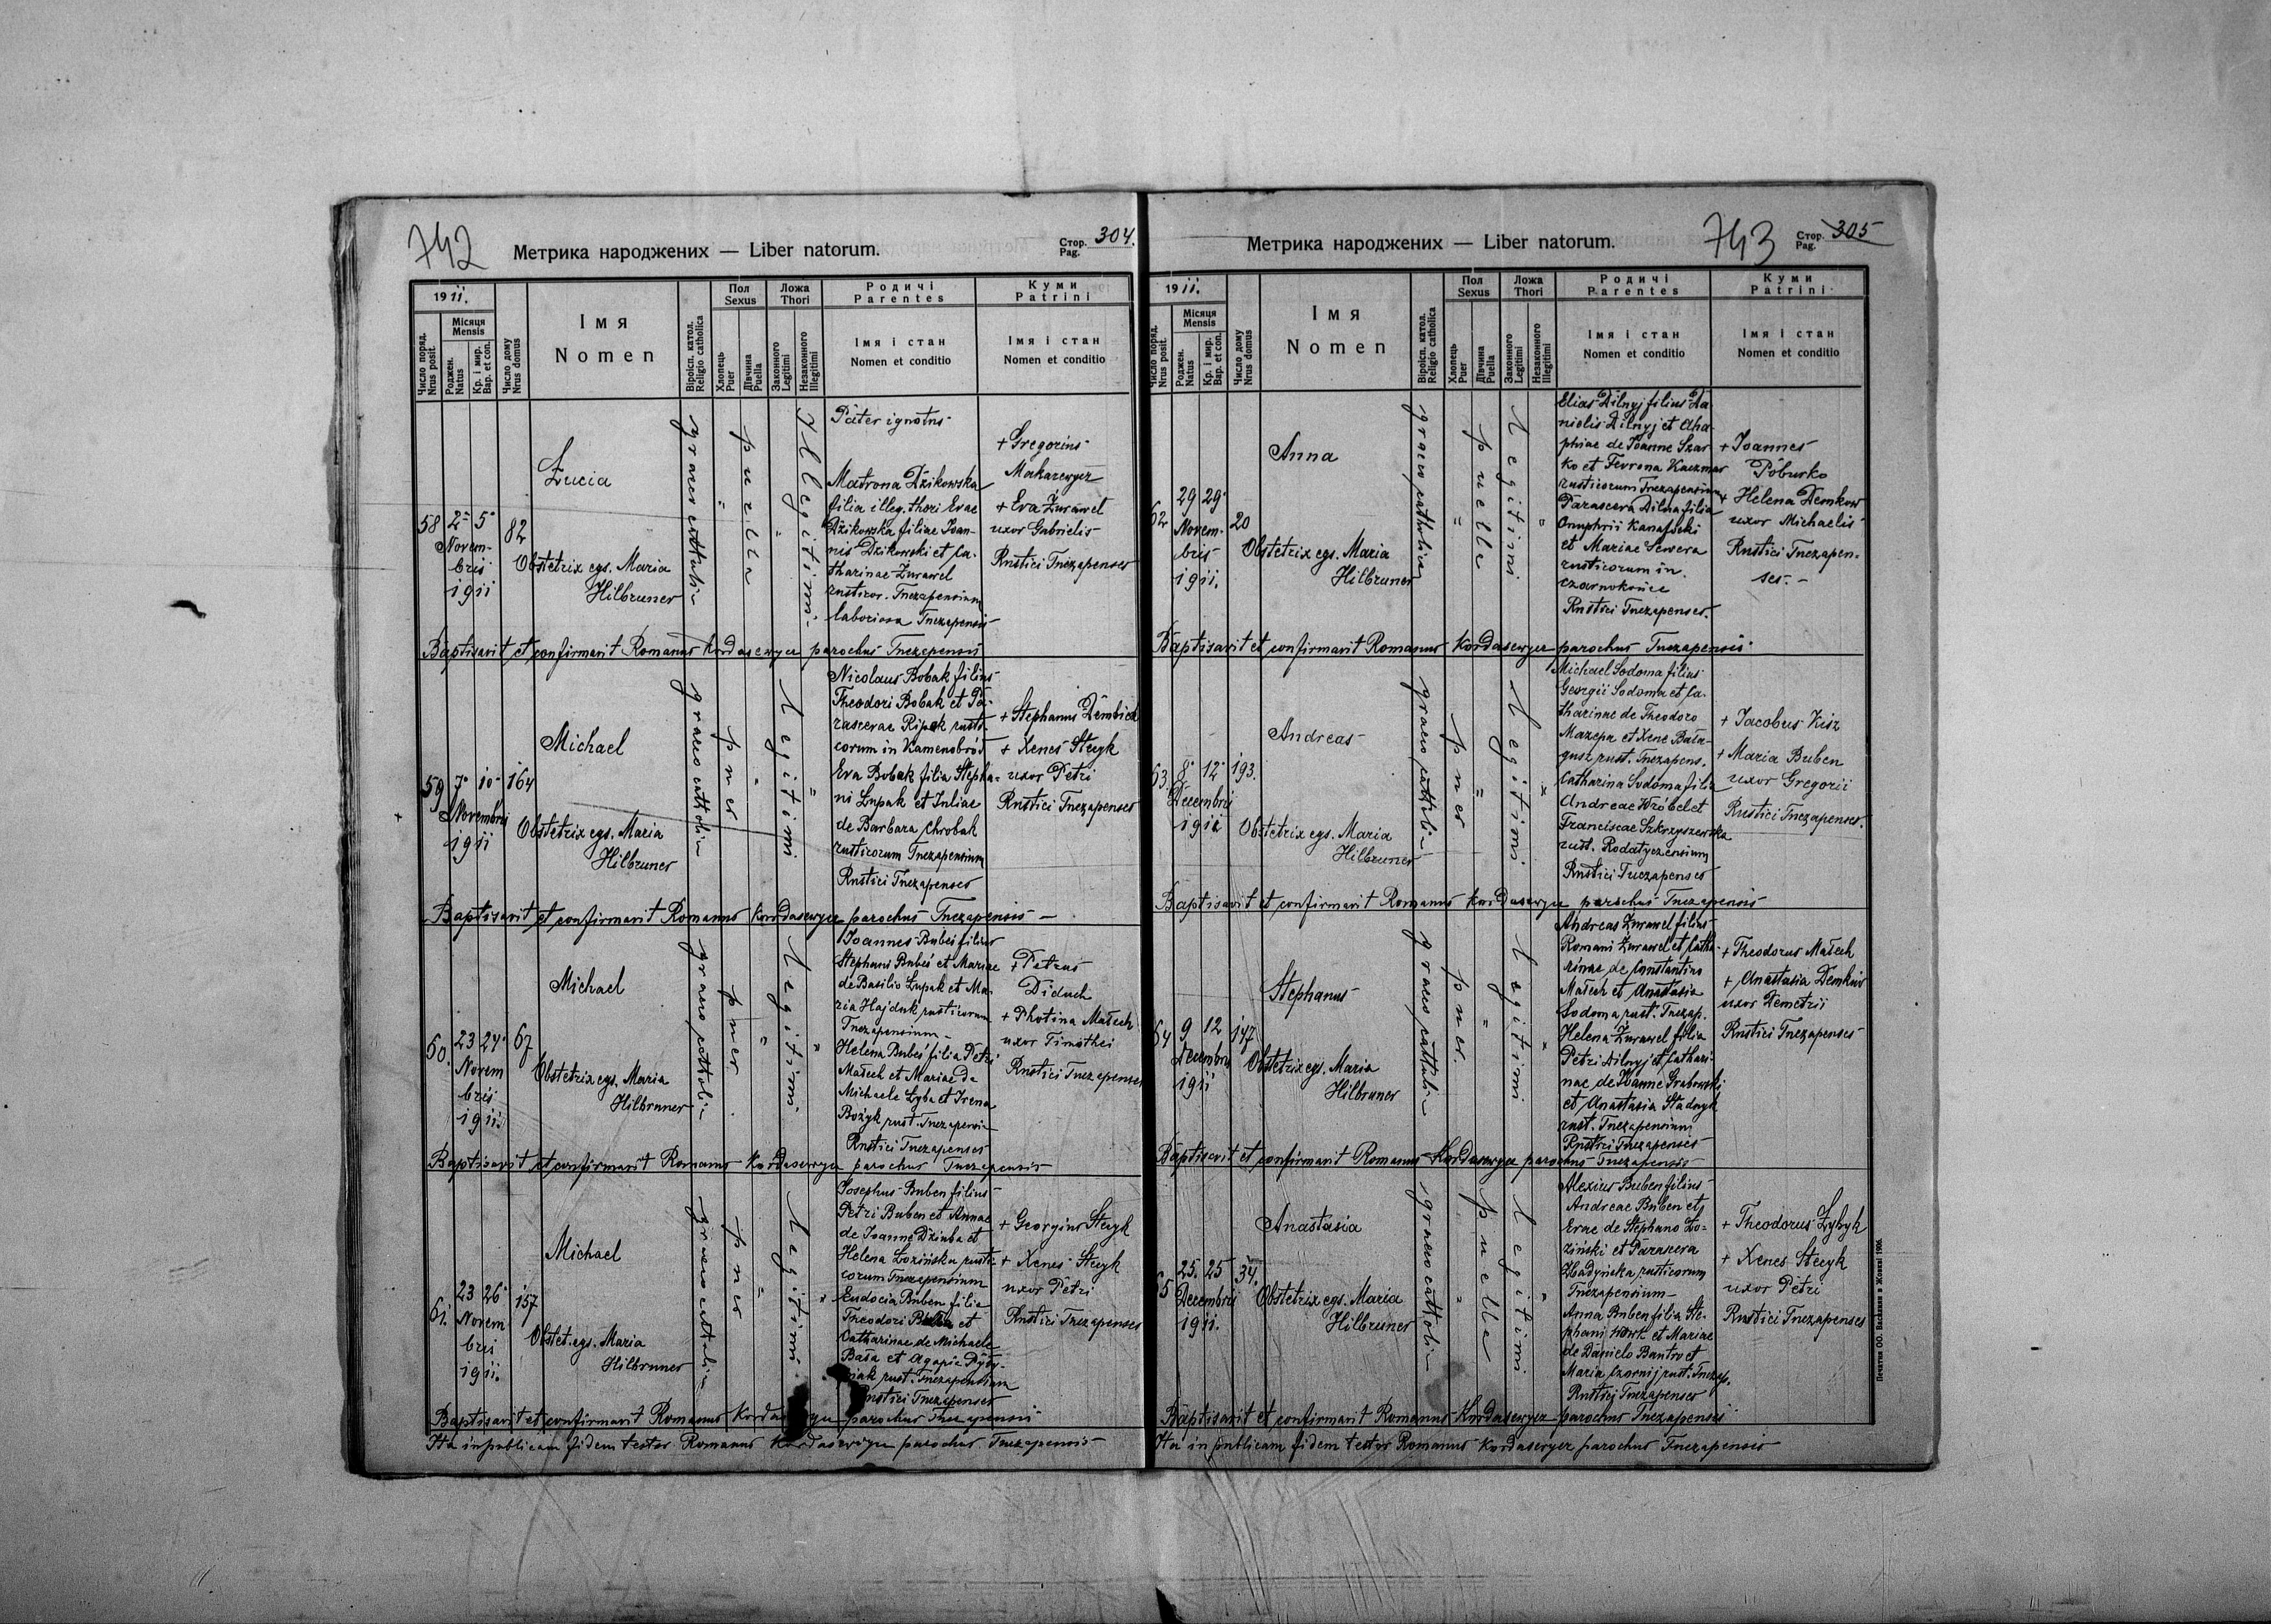 742
Метрика народжених — Liber natorum.
Стор. Pag. 304.
1911.
Число поряд. Nrus posit.
Місяця Mensis
Роджен. Natus
Кр. і мир. Bap. et con.
Число дому Nrus domus
Імя
Nomen
Віроісп. катол. Religio catholica
Пол Sexus
Хлопець Puer
Дівчина Puella
Ложа Thori
Законного Legitimi
Незаконного Illegitimi
Родичі Parentes
Імя і стан
Nomen et conditio
Куми Patrini
Імя і стан
Nomen et conditio
58
2 5
Novem-
bris
1911
82
Łucia
Obstetrix egs. Maria
Hilbruner
graeco catholica
puella
Illegitimi
Pater ignotus
Matrona Dzikowska
filia illeg. thori Evae
Dzikowska filiae Joan-
nis Dzikowski et Ca-
tharinae Żurawel
rusticor. Tuczapensium
laboriosa Tuczapensis
+ Gregorius
Makarewycz
+ Eva Żurawel
uxor Gabrielis
Rustici Tuczapenses
Baptisavit et confirmavit Romanus Kordasewycz parochus Tuczapensis
59
7 10
Novembris
1911
164
Michael
Obstetrix egs. Maria
Hilbruner
graeco catholica
puer
Legitimi
Nicolaus Bobak filius
Theodori Bobak et Pa-
rascevae Ripak rusti-
corum in Kamenobród
Eva Bobak filia Stepha-
ni Łupak et Juliae
de Barbara Chrobak
rusticorum Tuczapensium
Rustici Tuczapenses
+ Stephanus Dembich
+ Xenes Stecyk
uxor Petri
Rustici Tuczapenses
Baptisavit et confirmavit Romanus Kordasewycz parochus Tuczapensis —
60.
23 24
Novem
bris
1911.
67
Michael
Obstetrix egs. Maria
Hilbruner
graeco catholica
puer
Legitimi
Joannes Bubeś filius
Stephani Bubeś et Mariae
de Basilio Łupak et Ma-
ria Hajduk rusticorum
Tuczapensium
Helena Bubeś filia Petri
Małech et Mariae de
Michaele Zyba et Irena
Bożyk rust. Tuczapensium
Rustici Tuczapenses
+ Petrus
Diduch
+ Photina Małech
uxor Timothei
Rustici Tuczapenses
Baptisavit et confirmavit Romanus Kordasewycz parochus Tuczapensis
61.
23 26
Novem
bris
1911.
157
Michael
Obstet. egs. Maria
Hilbruner
graeco catholica
puer
Legitimi
Josephus Buben filius
Petri Buben et Annae
de Joanne Dziuba et
Helena Łozińska rusti-
corum Tuczapensium
Eudocia Buben filia
Theodori et
Catharinae de Michaele
Bała et Agapia
rust. Tuczapensium
Rustici Tuczapenses
+ Georgius Stecyk
+ Xenes Stecyk
uxor Petri
Rustici Tuczapenses
Baptisavit et confirmavit Romanus Kordasewycz parochus Tuczapensis
Ita in publicam fidem testor Romanus Kordasewycz parochus Tuczapensis
Метрика народжених — Liber natorum.
743
Стор. Pag. 305
1911.
Число поряд. Nrus posit.
Місяця Mensis
Роджен. Natus
Кр. і мир. Bap. et con.
Число дому Nrus domus
Імя
Nomen
Віроісп. катол. Religio catholica
Пол Sexus
Хлопець Puer
Дівчина Puella
Ложа Thori
Законного Legitimi
Незаконного Illegitimi
Родичі Parentes
Імя і стан
Nomen et conditio
Куми Patrini
Імя і стан
Nomen et conditio
62
29 29
Novem-
bris
1911.
20
Anna
Obstetrix egs. Maria
Hilbruner
graeco catholica
puella
Legitimi
Elias Dilnyj filius Da
nielis Dilnyj et Aha-
phiae de Joanne Szar
ko et Fevrona Kaczmar
rusticorum Tuczapensium
Parasceva Dilna filia
Onuphrii Kanafocki
et Mariae Sewera
rusticorum in
Czarnokońce
Rustici Tuczapenses.
+ Joannes
Poburko
+ Helena Demkow
uxor Michaelis
Rustici Tuczapen-
ses. -
Baptisavit et confirmavit Romanus Kordasewycz parochus Tuczapensis
63
8 12
Decembris
1911
193.
Andreas
Obstetrix egs. Maria
Hilbruner
graeco catholica
puer
Legitimi
Michael Sodoma filius
Georgii Sodoma et Ca-
tharinae de Theodoro
Mazepa et Xene Bała-
gusz rust. Tuczapens.
Catharina Sodoma filia
Andreae Wróbel et
Franciscae Szkrzyszewska
rust. Rodatyczensium
Rustici Tuczapenses
+ Jacobus Kisz
+ Maria Buben
uxor Gregorii
Rustici Tuczapenses.
Baptisavit et confirmavit Romanus Kordasewycz parochus Tuczapensis
64
9 12
Decembris
1911
147
Stephanus
Obstetrix egs. Maria
Hilbruner
graeco catholica
puer.
Legitimi
Andreas Żurawel filius
Romani Żurawel et Catha-
rinae de Constantino
Małech et Anastasia
Sodoma rust. Tuczap.
Helena Żurawel filia
Petri Dilnyj et Cathari-
nae de Joanne Grabowski
et Anastasia Stadnyk
rust. Tuczapensium
Rustici Tuczapenses
+ Theodorus Małech
+ Anastasia Demkiw
uxor Demetrii
Rustici Tuczapenses
Baptisavit et confirmavit Romanus Kordasewycz parochus Tuczapensis
65
25. 25
Decembris
1911.
34.
Anastasia
Obstetrix egs. Maria
Hilbruner
graeco catholica
puella
Legitimi
Alexius Buben filius
Andreae Buben et
Evae de Stephano Ło-
ziński et Parasceva
Hadyńska rusticorum
Tuczapensium
Anna Buben filia Ste-
phani Wowk et Mariae
de Daniele Bantro et
Maria Czornij rust. Tuczap.
Rustici Tuczapenses
+ Theodorus Zybyk
+ Xenes Stecyk
uxor Petri
Rustici Tuczapenses
Baptisavit et confirmavit Romanus Kordasewycz parochus Tuczapensis
Ita in publicam fidem testor Romanus Kordasewycz parochus Tuczapensis
Печатня ОО. Василиян в Жовкві 1906.